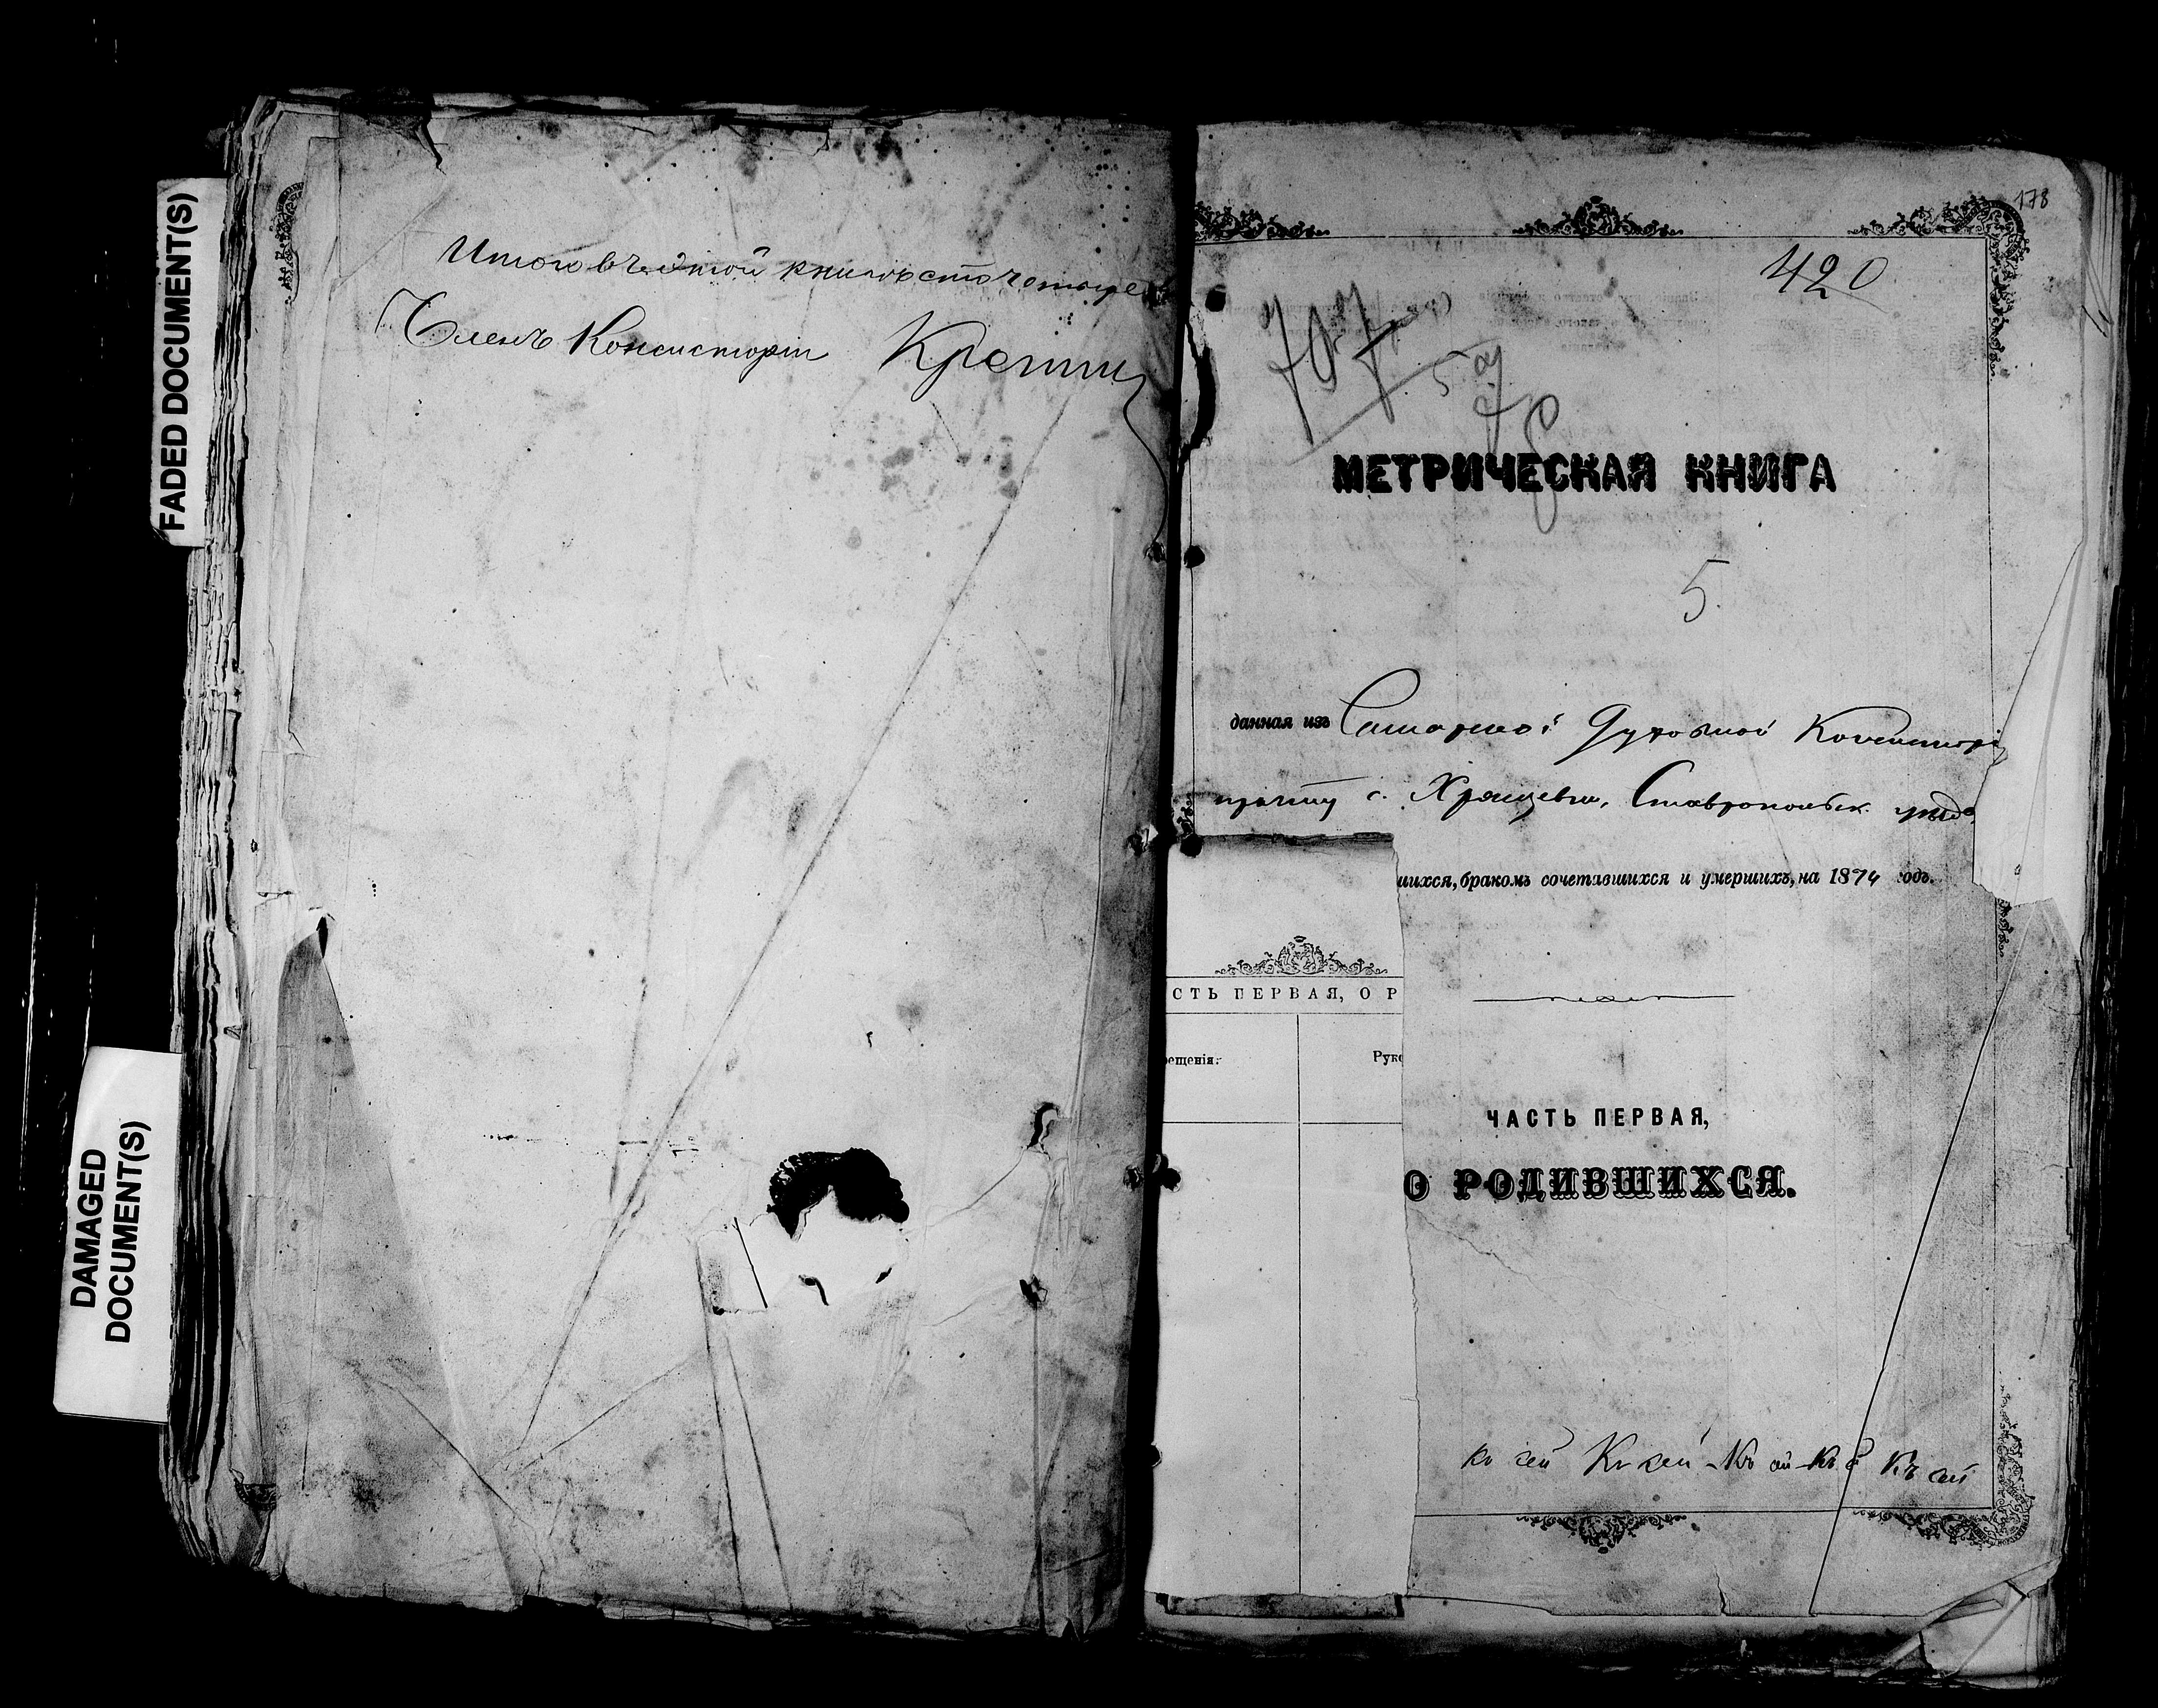 FADED DOCUMENT(S)
DAMAGED
DOCUMENT(S)
Итого въ этой книгѣ сто четыре
Членъ Консисторіи
178
420
707
5
МЕТРИЧЕСКАЯ КНИГА
5.
данная изъ Самарской Духовной Консисторіи
причту с. Хрящевки, Ставропольск. уѣзда
шихся, бракомъ сочетавшихся и умершихъ, на 1874 годъ.
СТЬ ПЕРВАЯ, О Р
рещенія:
Руко
ЧАСТЬ ПЕРВАЯ,
О РОДИВШИХСЯ.
къ сей